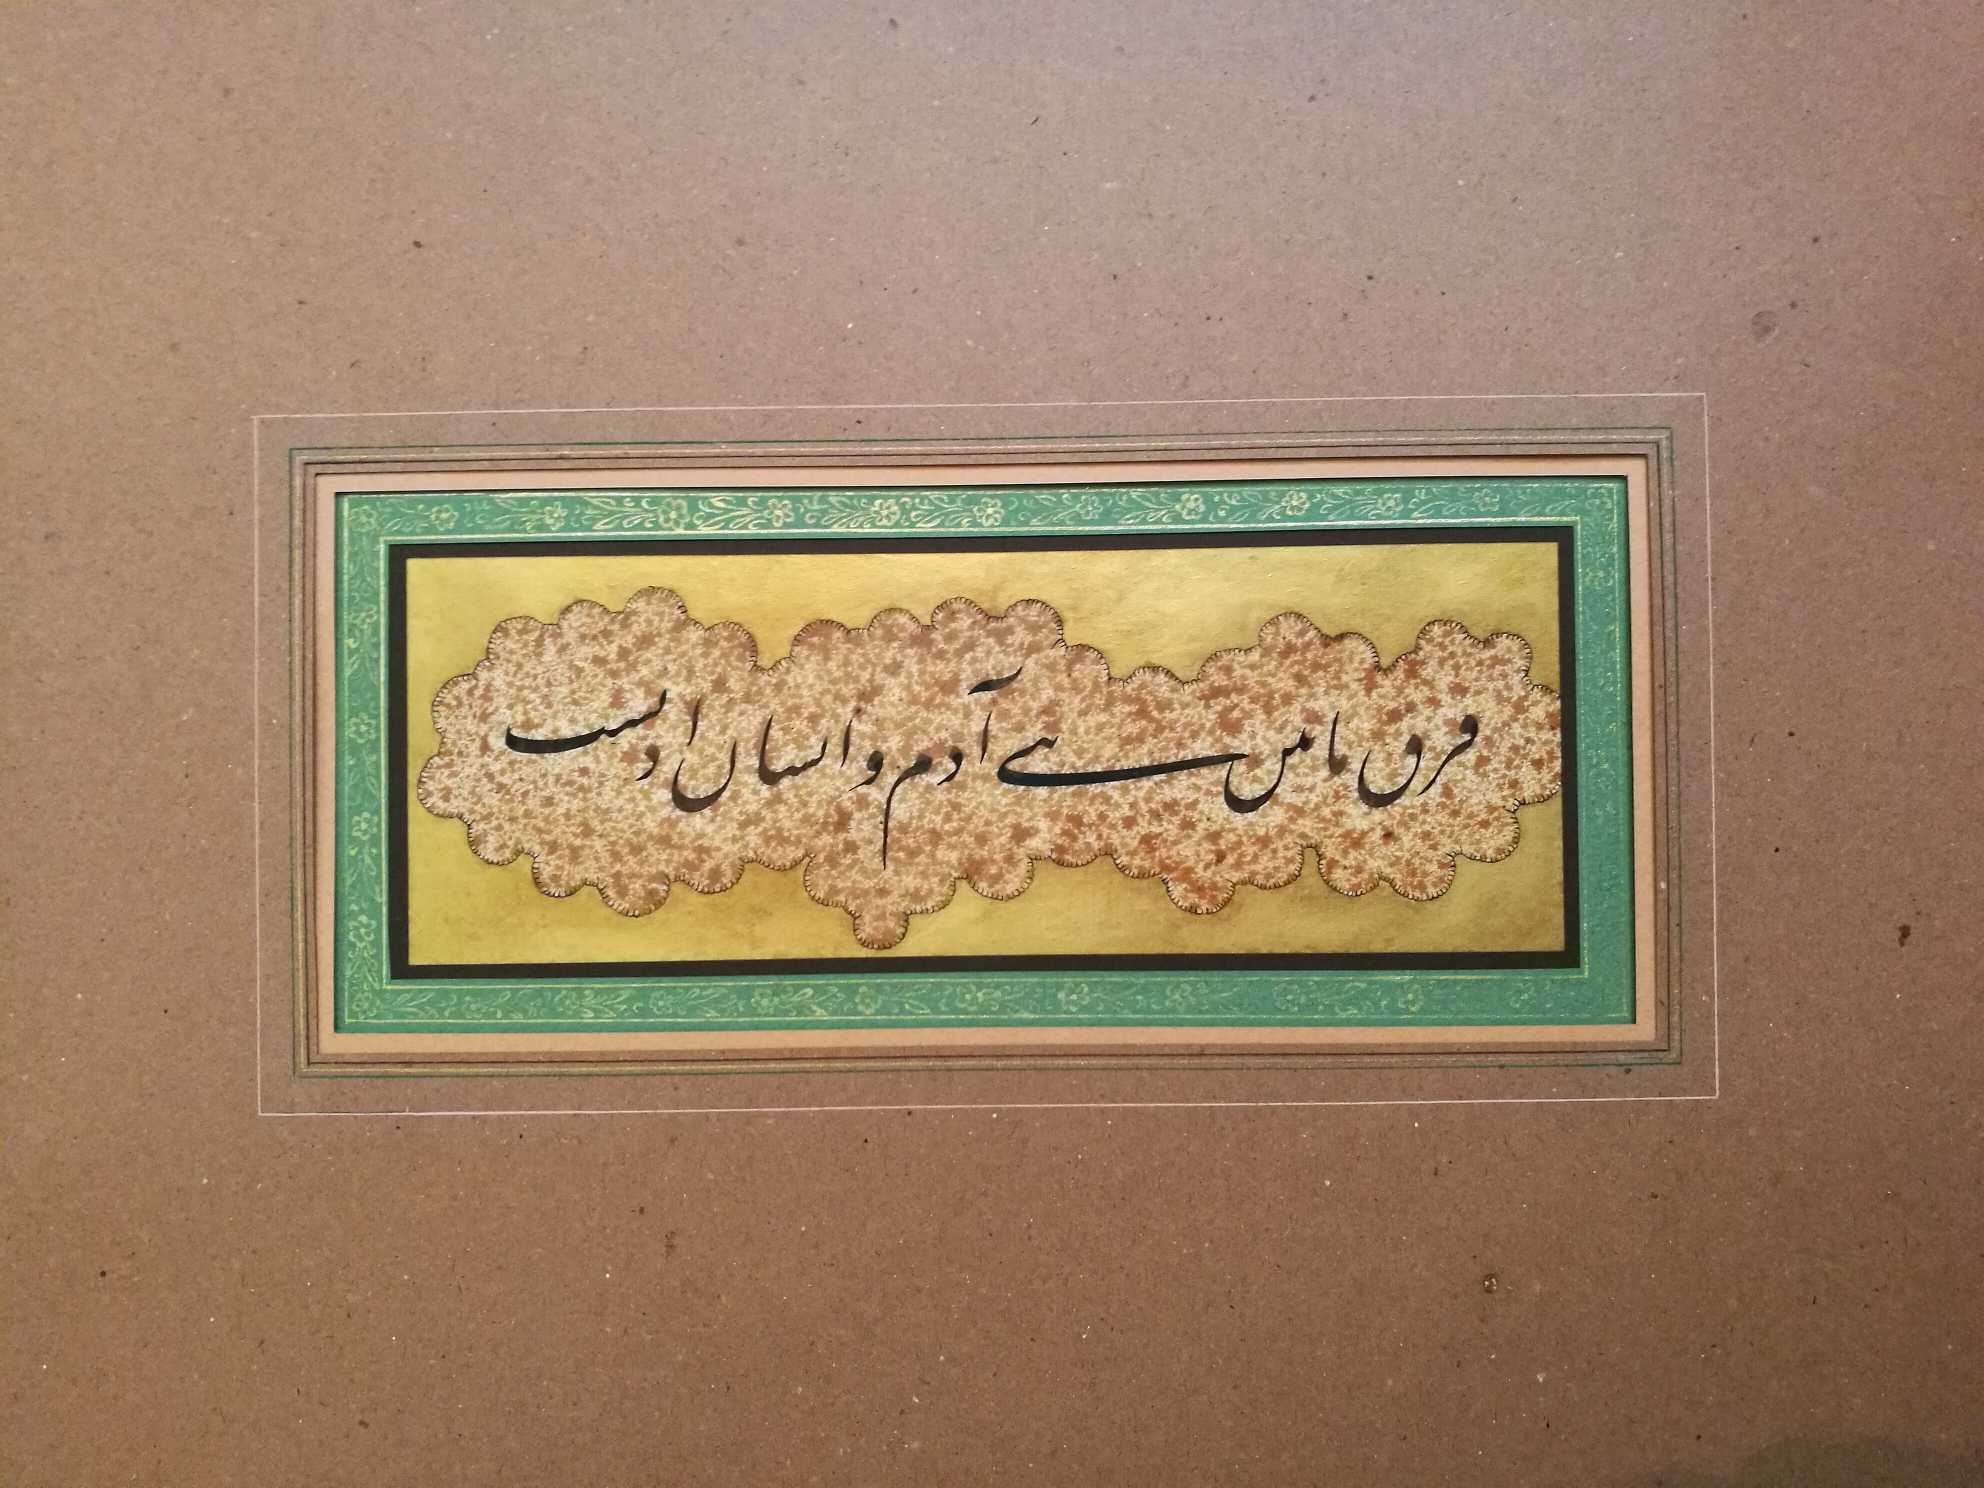 فرق مابین بنی آدم و انسان ادبست